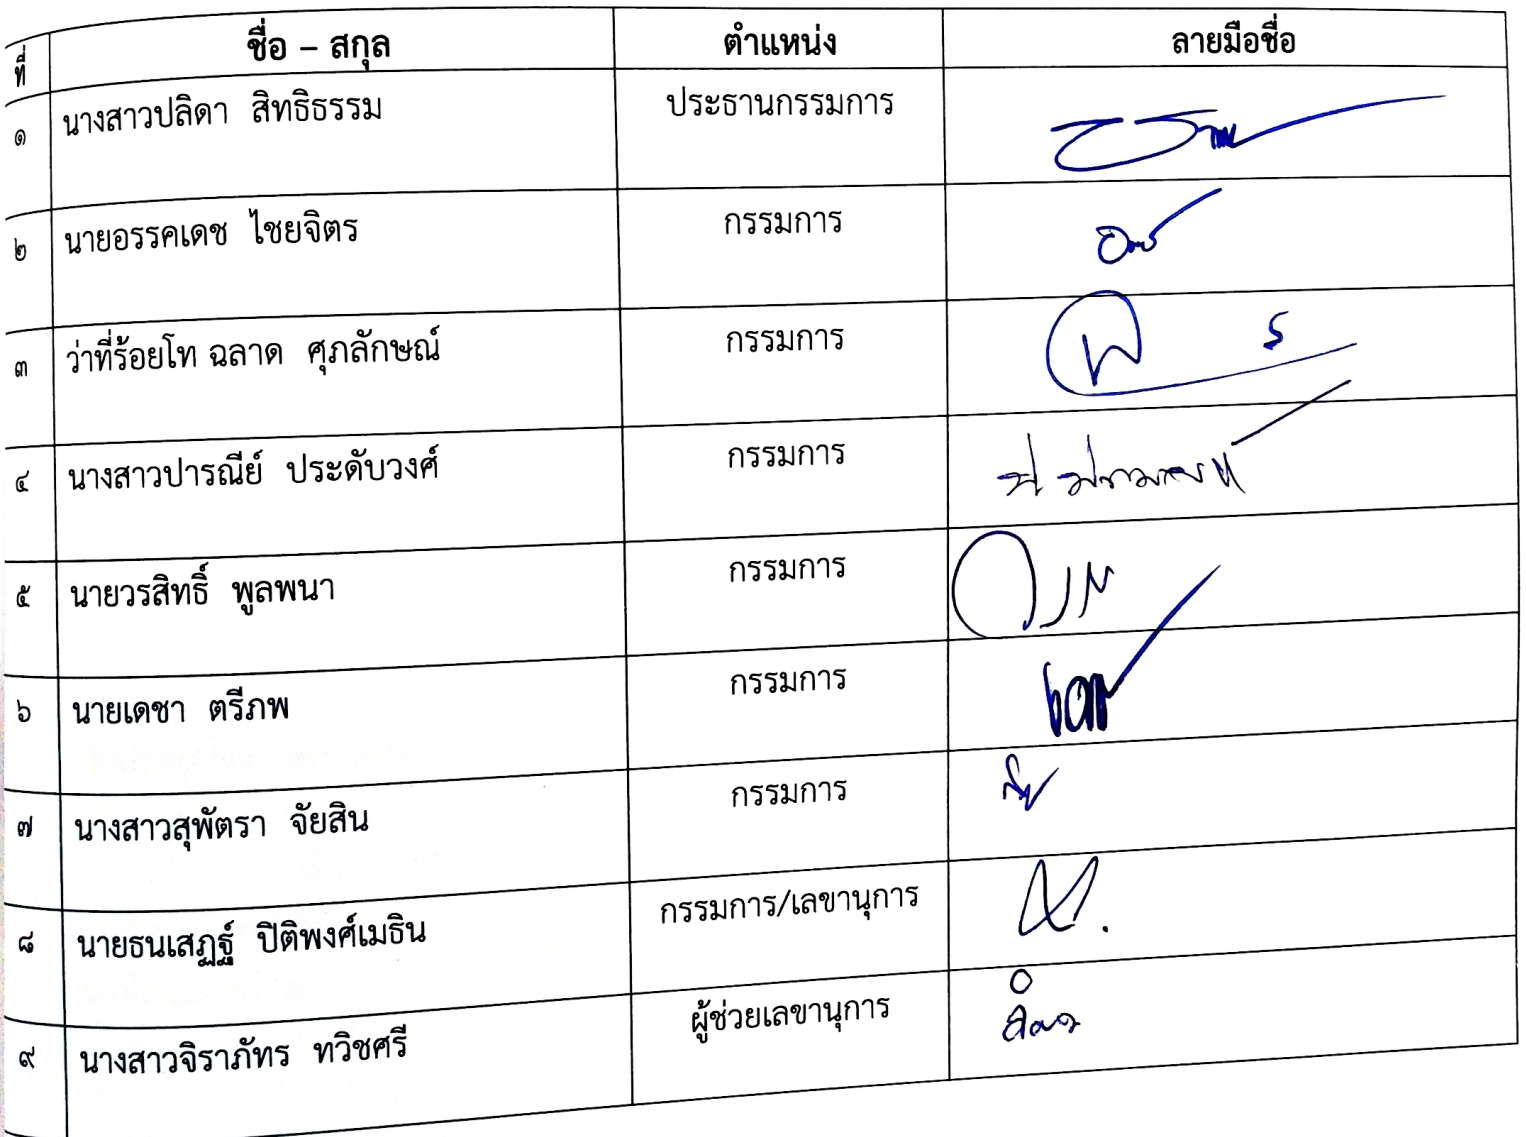 ที่ ชื่อ – สกุล ตำแหน่ง ลายมือชื่อ
๑ นางสาวปลิดา สิทธิธรรม ประธานกรรมการ
๒ นายอรรคเดช ไชยจิตร กรรมการ
๓ ว่าที่ร้อยโท ฉลาด ศุภลักษณ์ กรรมการ
๔ นางสาวปารณีย์ ประดับวงศ์ กรรมการ
๕ นายวรสิทธิ์ พูลพนา กรรมการ
๖ นายเดชา ตรีภพ กรรมการ
๗ นางสาวสุพัตรา จัยสิน กรรมการ
๘ นายธนเสฏฐ์ ปิติพงศ์เมธิน กรรมการ/เลขานุการ
๙ นางสาวจิราภัทร ทวิชศรี ผู้ช่วยเลขานุการ